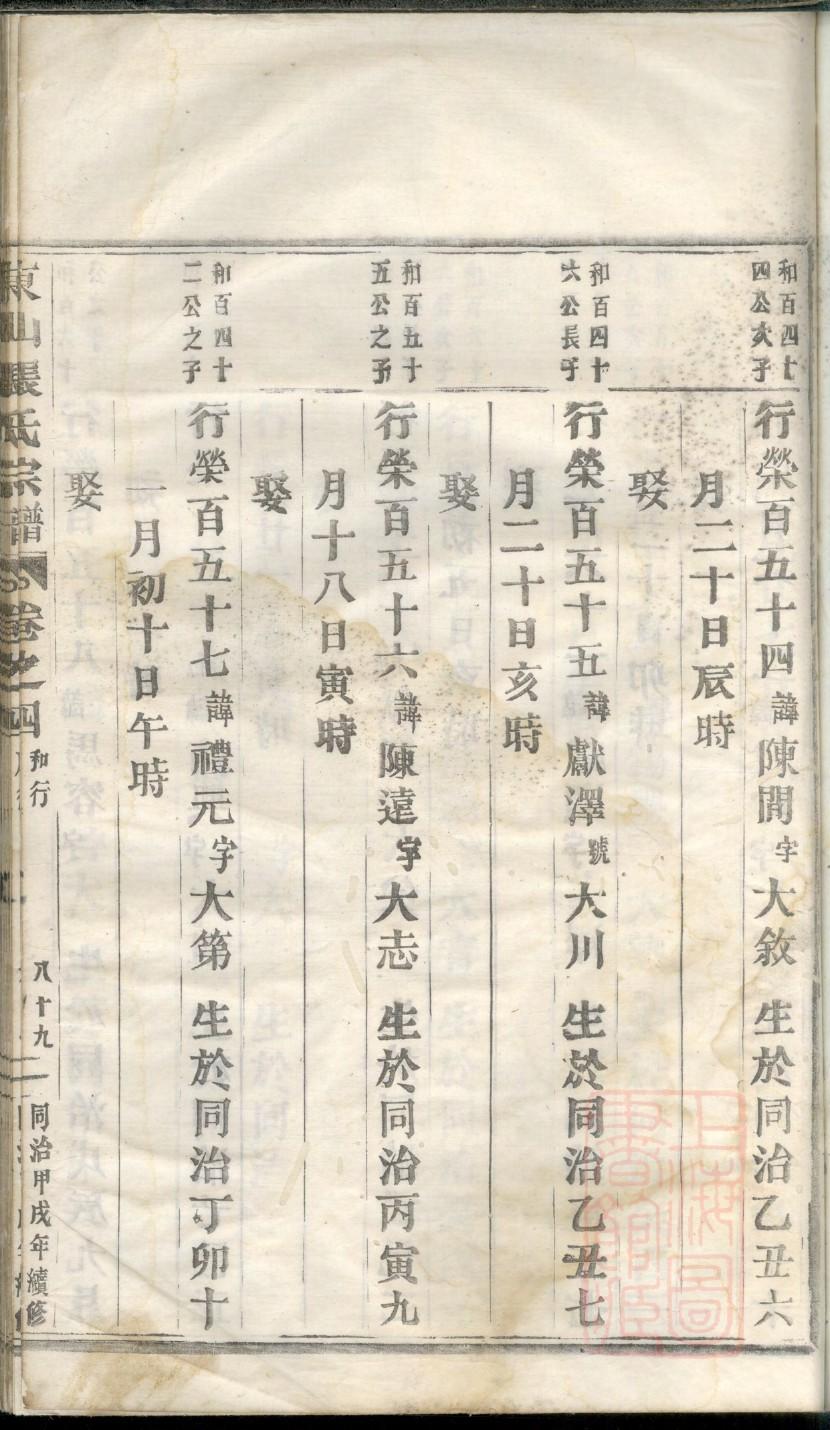 和百四十
四公次子
行榮百五十四諱陳開字大敘 生於同治乙丑六
月二十日辰時
娶
和百四十
六公長子
行榮百五十五諱獻澤號大川 生於同治乙丑七
月二十日亥時
娶
和百五十
五公之子
行榮百五十六諱陳遠字大志 生於同治丙寅九
月十八日寅時
娶
和百四十
二公之子
行榮百五十七諱禮元字大第 生於同治丁卯十
一月初十日午時
娶
東山張氏宗譜 卷之四
和行 八十九 同治甲戌年續修
上海圖書館藏